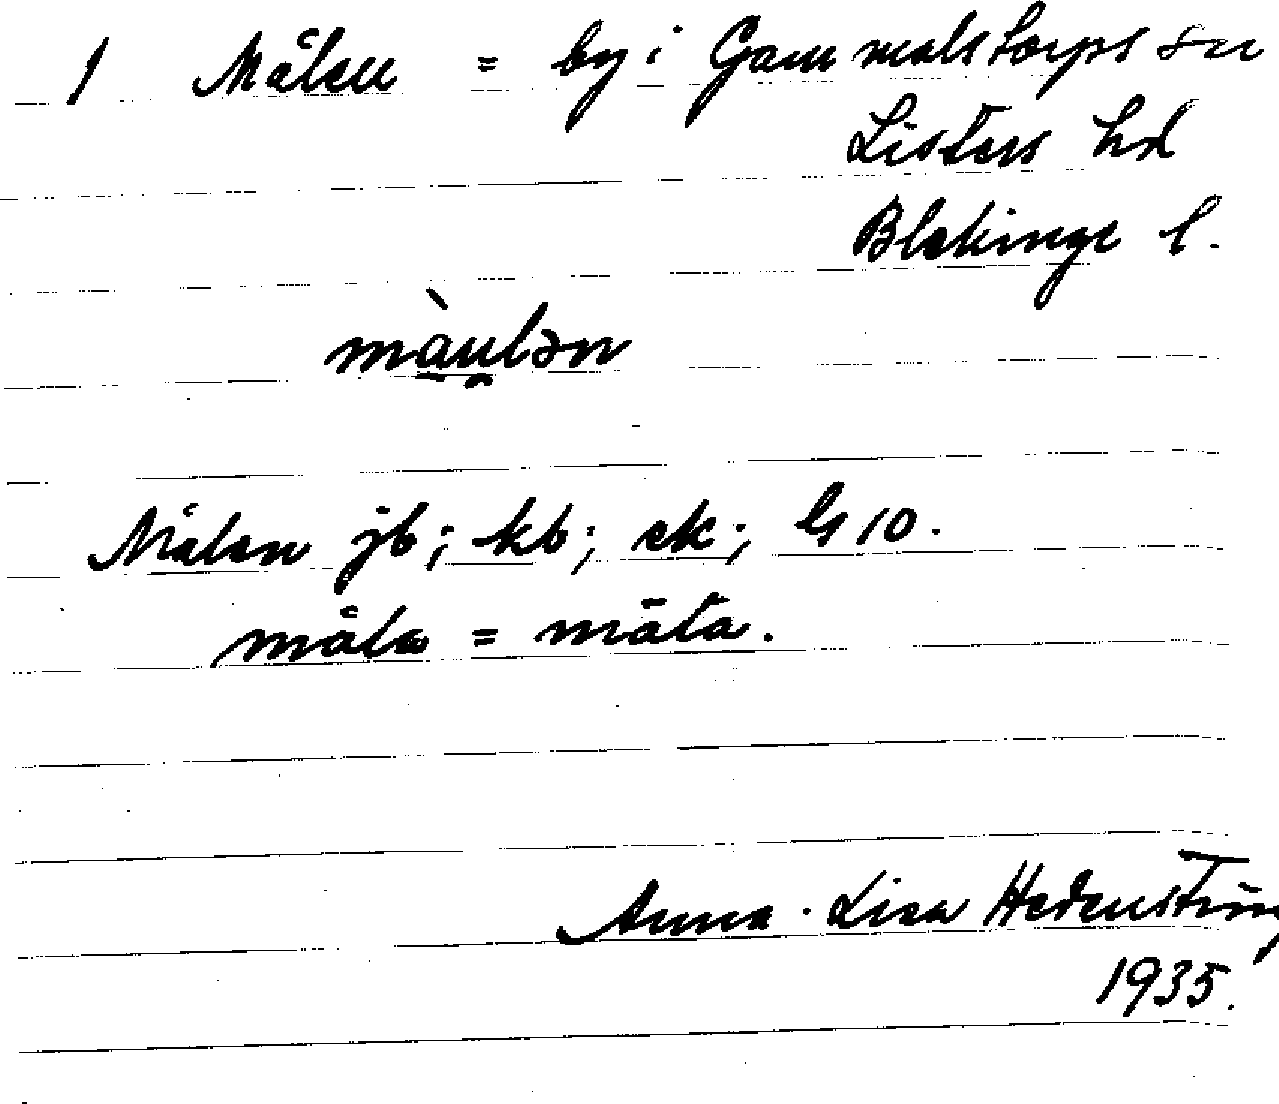 1 Målen = by i Gammalstorps sn
Listers hd
Blekinge l.
màu̯lən
Målen jb; kb; ek; GS 10.
måla = mäta.
Anna-Lisa
1935.